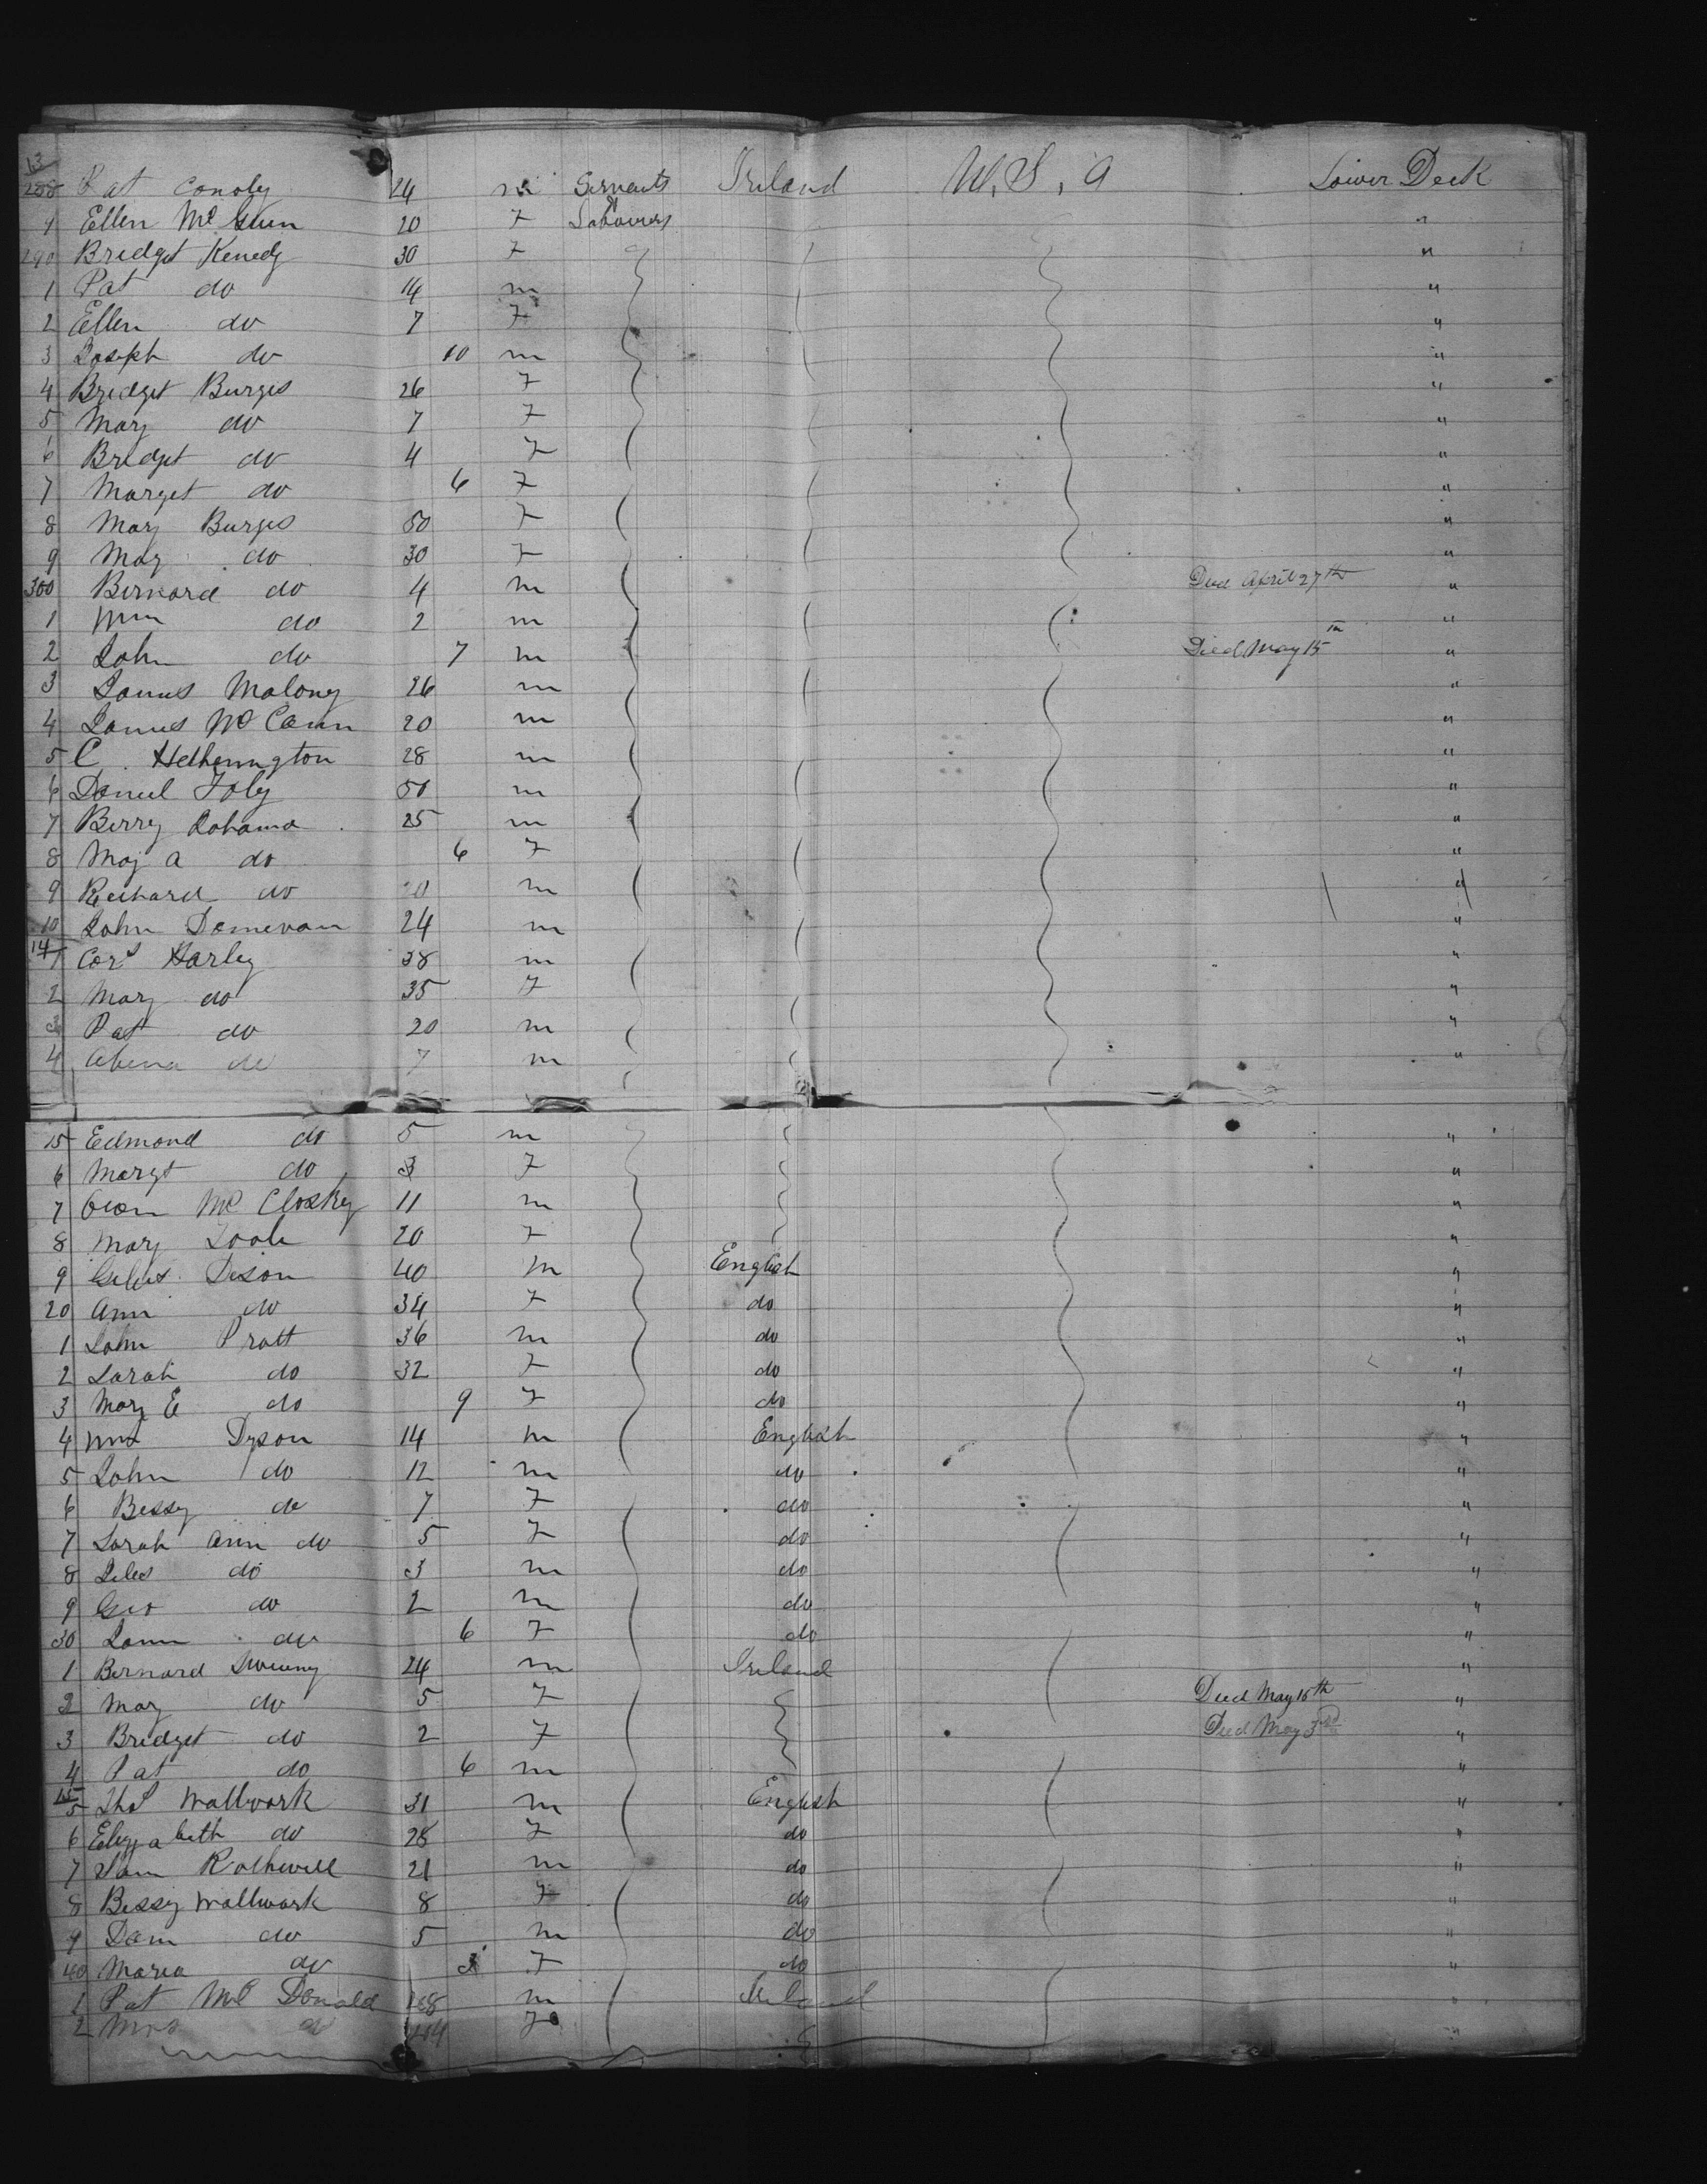 13
288 Pat Conoly 24 m Servants Ireland U, S, A Lower Deck
9 Ellen Mc 20 F & Labourers "
290 Bridget Kenedy 30 F "
1 Pat do 14 m "
2 Ellen do 7 F "
3 Joseph do 10 m "
4 Bridget Burges 26 F "
5 Mary do 7 F "
6 Bridget do 4 F "
7 Marget do 6 F "
8 Mary Burges 50 F "
9 Mary do 30 F "
300 Bernard do 4 m Died April 27th "
1 Wm do 2 m "
2 John do 7 m Died May 15th "
3 James Malony 26 m "
4 James Mc Cann 20 m "
5 C. Hetherington 28 m "
6 Daniel Foly 50 m "
7 Berry 25 m "
8 Mary A do 6 F "
9 Richard do 20 m "
10 John Donnevan 24 m "
14
1 Cors Harley 38 m "
2 Mary do 35 F "
3 Pat do 20 m "
4 do 7 m "
15 Edmond do 5 m "
6 Margt do 3 F "
7 Owen Mc Closkey 11 m "
8 Mary Toole 20 F "
9 Giles Dison 40 m English "
20 Ann do 34 F do "
1 John Pratt 36 m do "
2 Sarah do 32 F do "
3 Mary E do 9 F do "
4 Wm Dyson 14 m English "
5 John do 12 m do "
6 Bessy do 7 F do "
7 Sarah Ann do 5 F do "
8 Giles do 3 m do "
9 Geo do 2 m do "
30 do 6 F do "
1 Bernard Sweeny 24 m Ireland "
2 Mary do 5 F Died May 15th "
3 Bridget do 2 F Died May 3rd "
4 Pat do 6 m "
15
5 Thos Wallwork 31 m English "
6 Elizabeth do 28 F do "
7 Sam Rothwell 21 m do "
8 Bessy Wallwork 8 F do "
9 Sam do 5 m do "
40 Maria do 3 F do "
1 Pat Mc Donald 28 m Ireland "
2 Mrs do 24 F "